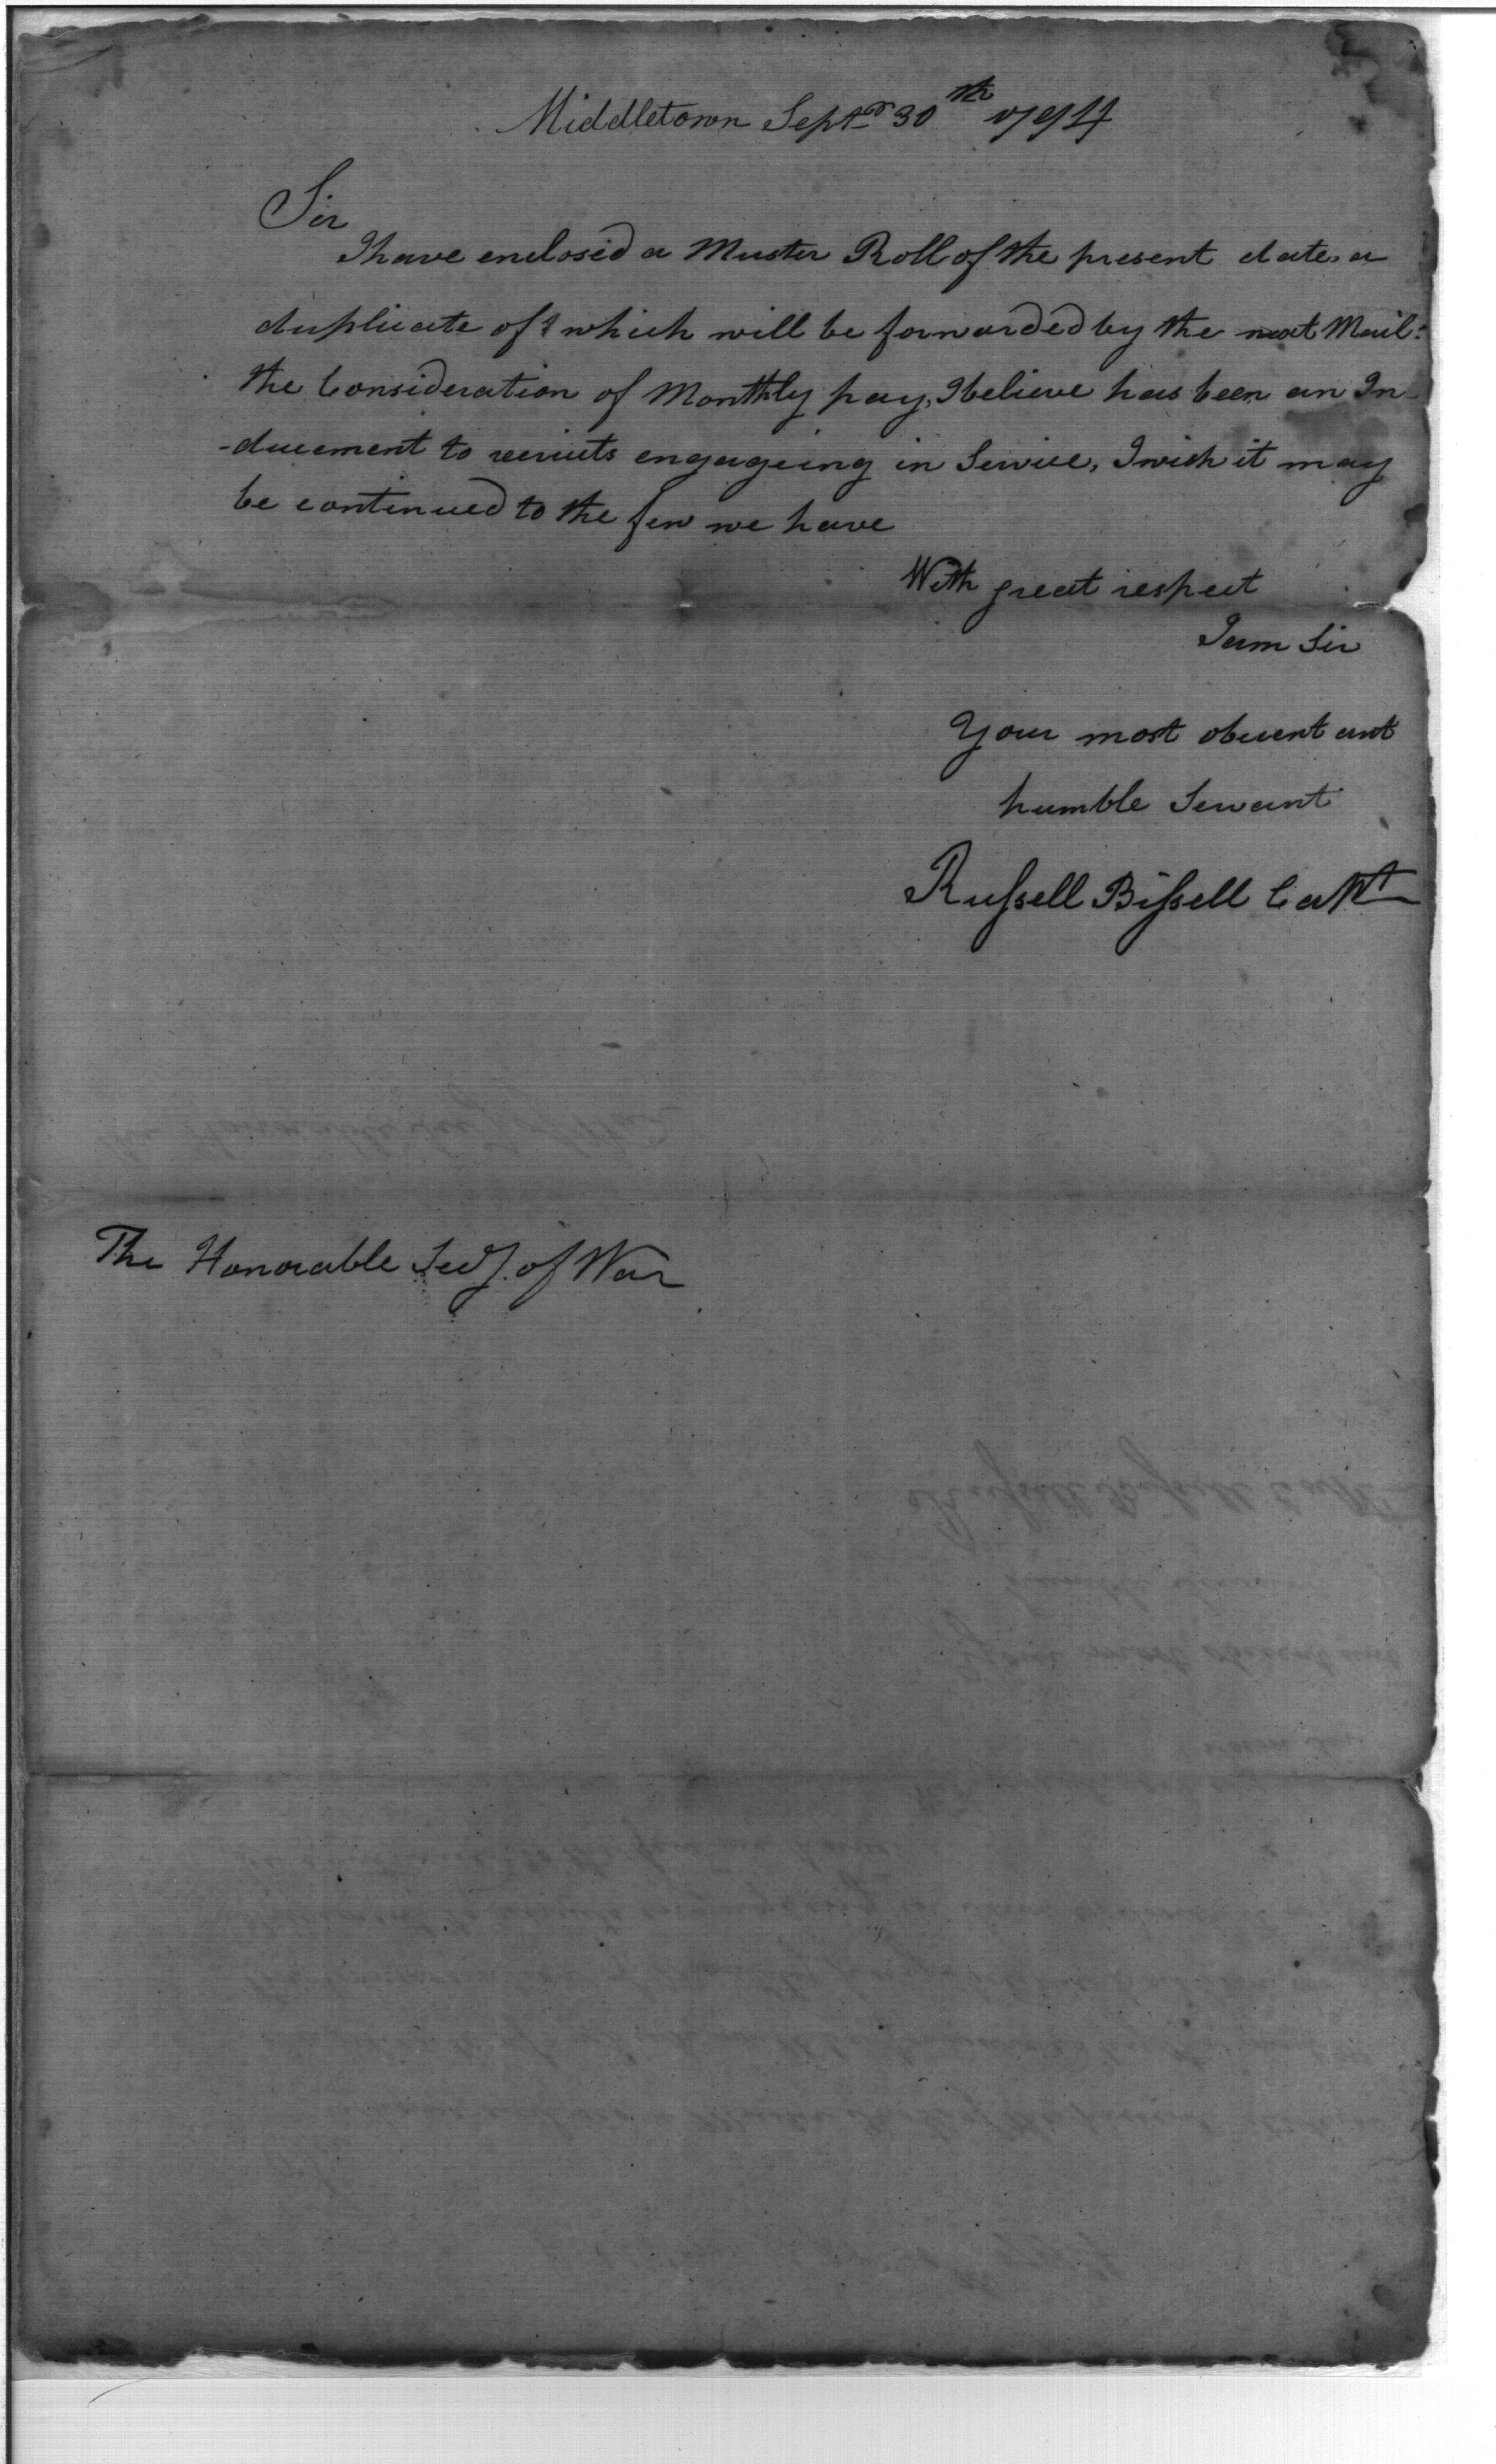 Middletown Septr 30th 1794
Sir
I have enclosed a Muster Roll of the present date, a
duplicate of which will be forwarded by the next Mail:
the Consideration of Monthly pay, I believe has been an In-
-ducement to recruits engageing in Service, I wish it may
be continued to the few we have
With great respect
I am Sir
Your most obident
humble Servant
Russell Bissell Capt
The Honorable Secy. of War